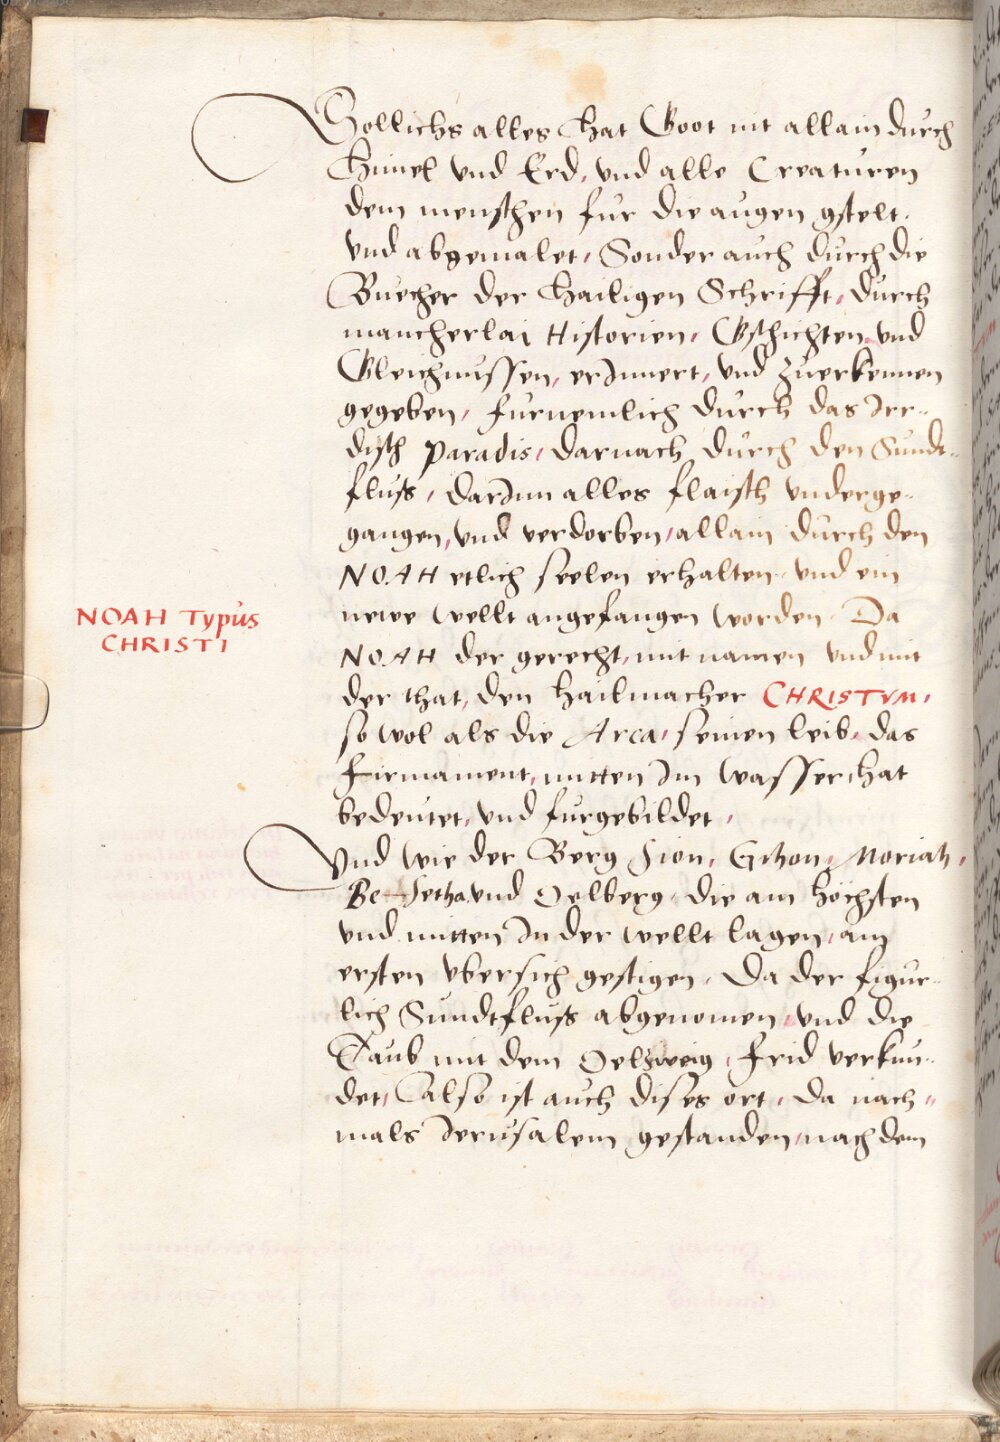 Sollichs alles hat Goot nit allain durch
Himel vnd Erd, vnd alle Creaturen
dem menschen fur die augen gstelt,
vnd abgemalet, Sonder auch durch die
Buecher der hailigen Schrifft, durch
mancherlai Historien, Gschichten, vnd
Gleichnussen, erJnnert, vnd zuerkennen
gegeben, furnemlich durch das Jrr-
disch Paradis, darnach durch den Sundt-
fluss, darJnn alles flaisch vnderge-
gangen, vnd verdorben, allain durch den
NOAH etlich seelen erhalten, vnd ein
newe wellt angefangen worden. Da
NOAH der gerecht, mit namen vnd mit
der that, den hailmacher CHRISTVM,
so wol als die Arca, seinen leib, das
Firmament, mitten Jm wasser, hat
bedeutet, vnd furgebildet,
NOAH Typus
CHRISTI
Vnd wie der Berg Sion, Gihon, Moriah,
Be-Setha, vnd Oelberg, die am höchsten
vnd mitten Jn der wellt lagen, am
ersten vbersich gestigen, Da der figur-
lich Sundtfluss abgenomen, vnd die
Taub mit dem Oelzweig, frid verkun-
det, Also ist auch dises ort, da nach-
mals Jerusalem gestanden, nach dem